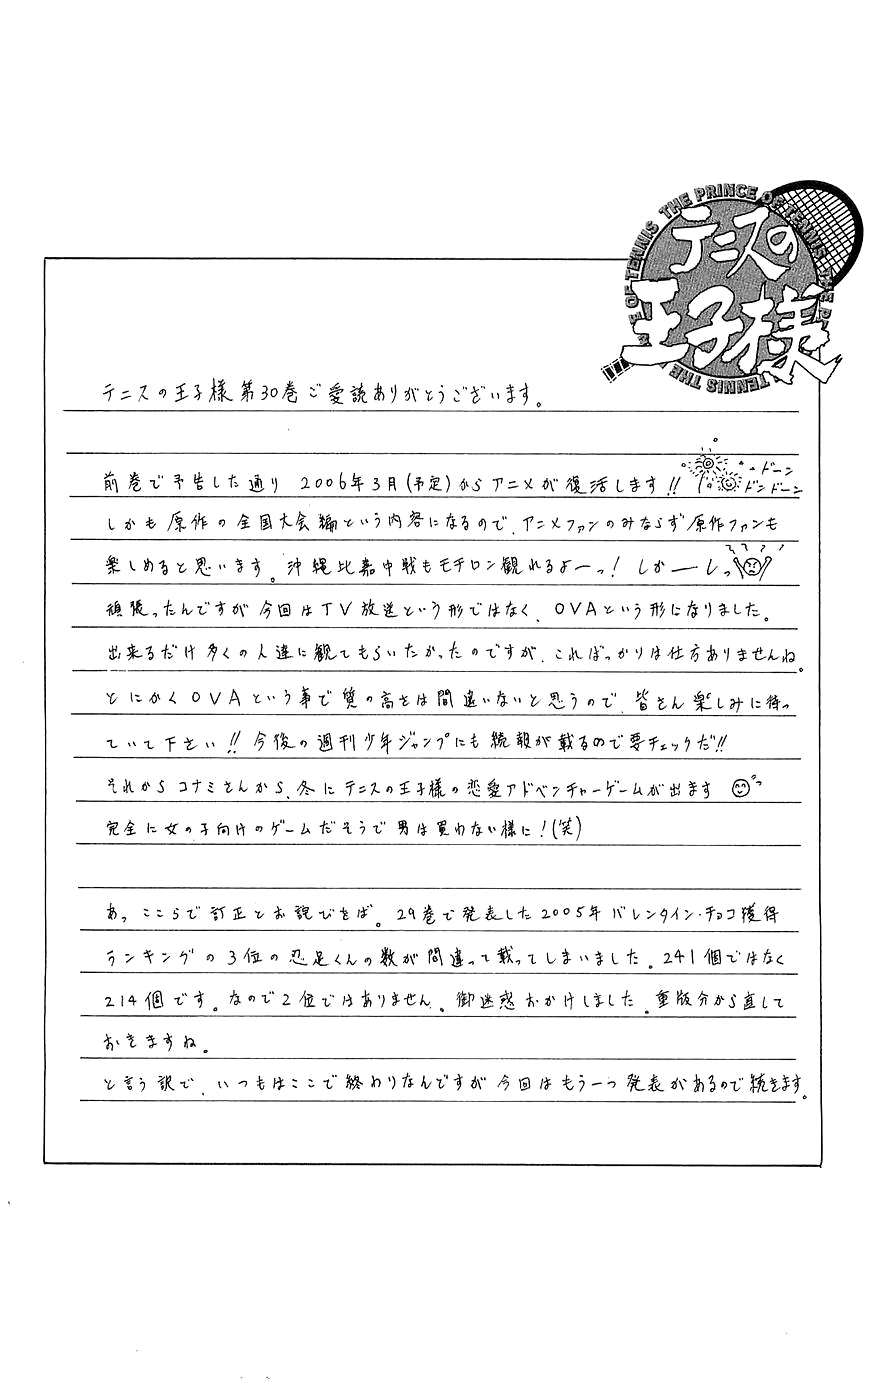 THE PRINCE OF TENNIS THE PRINCE OF TENNIS THE
テニスの
王子様
テニスの王子様第30巻ご愛読ありがとうございます。
前巻で予告した通り 2006年3月(予定)からアニメが復活します!! ドーン
ドンドーン
しかも原作の全国大会編という内容になるので、アニメファンのみならず原作ファンも
楽しめると思います。沖縄比嘉中戦もモチロン観れるよーっ! しか──しっ
頑張ったんですが今回はTV放送という形ではなく、OVAという形になりました。
出来るだけ多くの人達に観てもらいたかったのですが、こればっかりは仕方ありませんね。
とにかくOVAという事で質の高さは間違いないと思うので、皆さん楽しみに待っ
ていて下さい!! 今後の週刊少年ジャンプにも続報が載るので要チェックだ!!
それからコナミさんから、冬にテニスの王子様の恋愛アドベンチャーゲームが出ます
完全に女の子向けのゲームだそうで男は買わない様に!(笑)
あっここらで訂正とお詫びをば。29巻で発表した2005年バレンタイン・チョコ獲得
ランキングの3位の忍足くんの数が間違って載ってしまいました。241個ではなく
214個です。なので2位ではありません。御迷惑おかけしました。重版分から直して
おきますね。
と言う訳で、いつもはここで終わりなんですが今回はもう一つ発表があるので続きます。